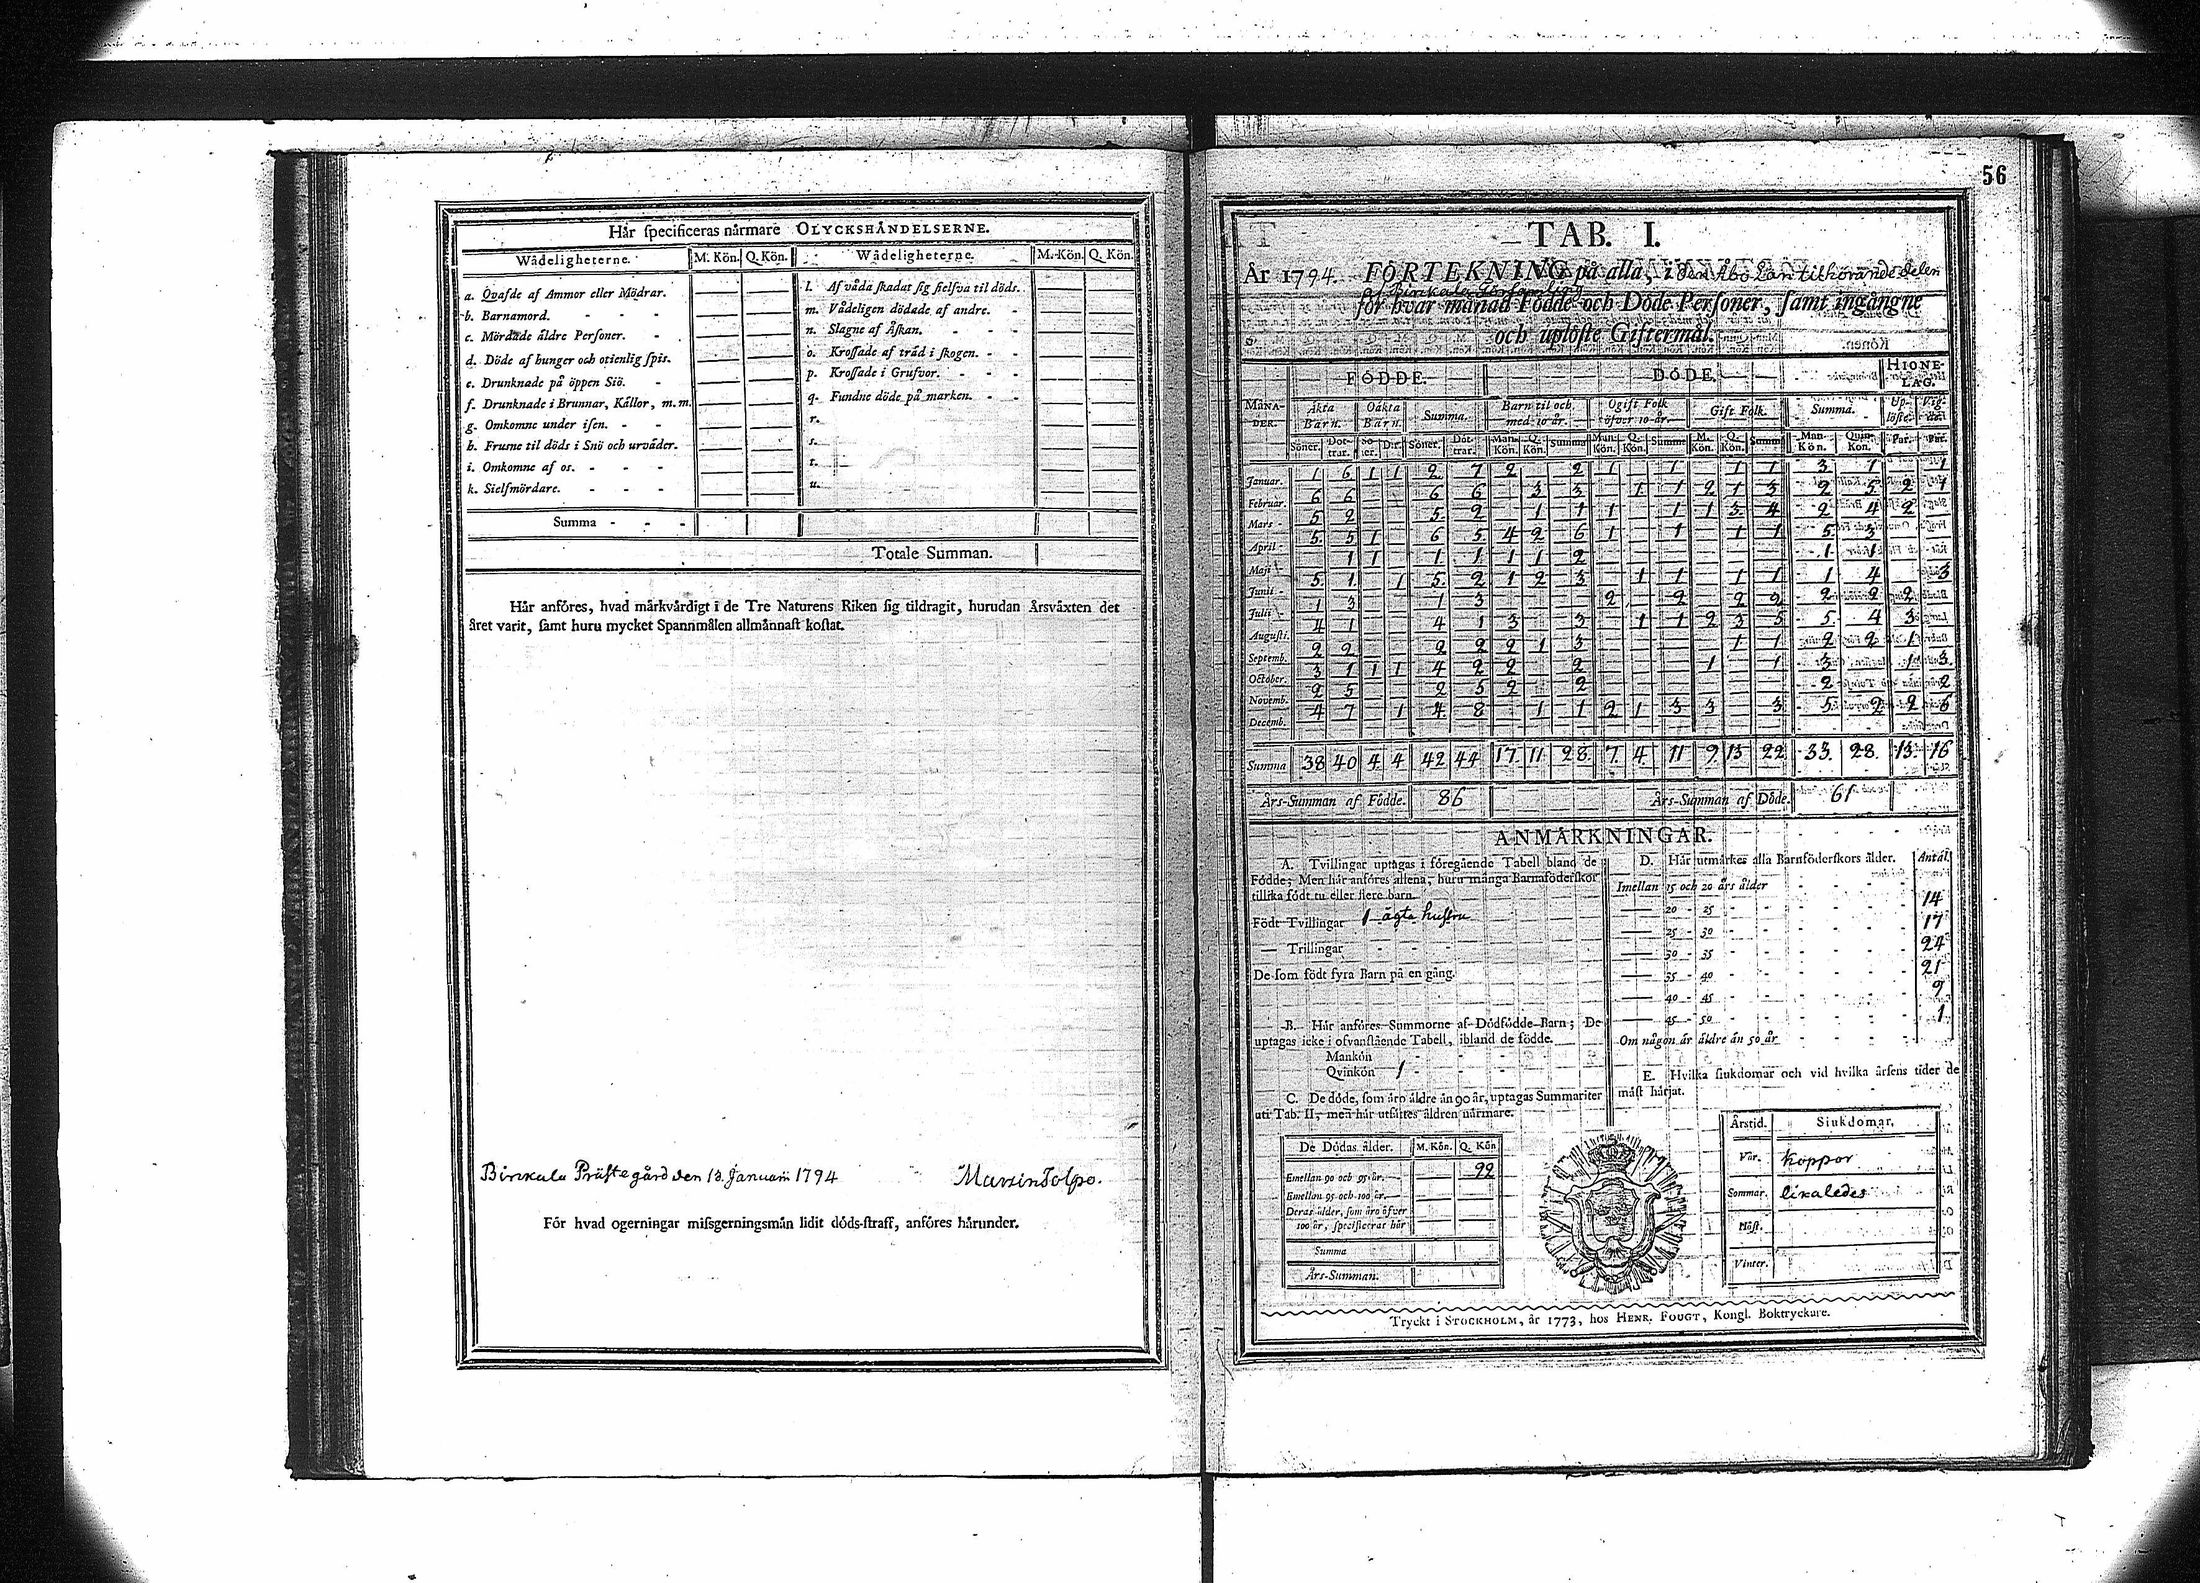 Hår specificeras nårmare OLYCKSHÅNDELSERNE.
Wådeligheterne. M. Kön. Q. Kön. Wådeligheterne. M. Kön. Q. Kön.
a. Qvafde af Ammor eller Mödrar.
b. Barnamord. - - -
c. Mördade åldre Personer. -
d. Döde af hunger och otienlig spis.
e. Drunknade på öppen Siö. -
f. Drunknade i Brunnar, Kållor, m.m.
g. Omkomne under isen. - -
h. Frusne til döds i Snö och urvåder.
i. Omkomne af os. - - -
k. Sielfmördare. - - -
l. Af våda skadat sig sielfva til döds.
m. Vådeligen dödade af andre. -
n. Slagne af Åskan. - - -
o. Krossade af tråd i skogen. - -
p. Krossade i Grufvor. - - -
q. Fundne döde på marken. - -
r.
s.
t.
u.
Summa - - -
Totale Summan.
Hår anföres, hvad mårkvårdigt i de Tre Naturens Riken sig tildragit, hurudan Årsvåxten det
året varit, samt huru mycket Spannmålen allmånnast kostat.
Birkala Prästegård den 13. Januarii 1794 Martin Tolpo.
För hvad ogerningar missgerningsmån lidit döds-straff, anföres hårunder.
56
TAB. I.
År 1794. FÖRTEKNING på alla, i den Åbo Län tilhörande delen
af Birkala Församling
för hvar månad Födde och Döde Personer, samt ingångne
och uplöste Giftermål.
FÖDDE. DÖDE. HIONELAG.
MÅNADER. Äkta Barn. Oäkta Barn. Summa. Barn til och med 10 år. Ogift Folk öfver 10 år. Gift Folk. Summa. Uplöste. Vigde.
Söner. Dottrar. Söner. D:r. Söner. Döttrar. Man-Kön. Q. Kön. Summa Man-Kön. Q. Kön. Summa M. Kön. Q. Kön. Summa Man-Kön. Quin-Kön. Par. Par.
Januar. 1 6 1 1 2 7 2 2 1 1 1 1 3 1 1
Februar. 6 6 6 6 3 3 1 1 2 1 3 2 5 2 1
Mars - 5 2 5 2 1 1 1 1 1 3 4 2 4 2
April - 5 5 1 6 5 4 2 6 1 1 1 1 5 3
Maji 1 1 1 1 1 1 2 1 1
Junii - 5 1 1 5 2 1 2 3 1 1 1 1 1 4 3
Julii 1 3 1 3 2 2 2 2 2 2 2
Augusti. 4 1 4 1 3 3 1 1 2 3 5 5 4 3
Septemb. 2 2 2 2 2 1 3 1 1 2 2 1
October. 3 1 1 1 4 2 2 2 1 1 3 1 3
Novemb. 2 5 2 5 2 2 2 2
Decemb. 4 7 1 4 8 1 1 2 1 3 3 3 5 2 2 6
Summa 38 40 4 4 42 44 17 11 28 7 4 11 9 13 22 33 28 13 16
Års-Summan af Födde. 86 Års-Summan af Döde. 61
ANMÅRKNINGAR.
A. Tvillingar uptagas i föregående Tabell bland de
Födde; Men hår anföres allena, huru många Barnaföderskor
tillika födt tu eller flere barn.
Födt Tvillingar 1 ägta hustru
— Trillingar - - -
De som födt fyra Barn på en gång.
B. Hår anföres Summorne af Dödfödde Barn; De
uptagas icke i ofvanstående Tabell, ibland de födde.
Mankön - - -
Qvinkön 1 - - -
C. De döde, som åro åldre ån 90 år, uptagas Summariter
uti Tab. II, men hår utsåttes åldren nårmare.
De Dödas ålder. M. Kön. Q. Kön
Emellan 90 och 95 år. 92
Emellan 95 och 100 år.
Deras ålder, som åro öfver
100 år, specificeras hår
Summa
Års-Summan.
D. Hår utmårkes alla Barnföderskors ålder. Antal.
Imellan 15 och 20 års ålder
— 20 - 25 - 14
— 25 - 30 - 17
— 30 - 35 - 24
— 35 - 40 - 21
— 40 - 45 - 9
— 45 - 50 - 1
Om någon år åldre ån 50 år
E. Hvilka siukdomar och vid hvilka årsens tider de
måst hårjat.
Årstid. Siukdomar.
Vår. koppor
Sommar. likaledes
Höst.
Vinter.
Tryckt i STOCKHOLM, år 1773, hos HENR. FOUGT, Kongl. Boktryckare.